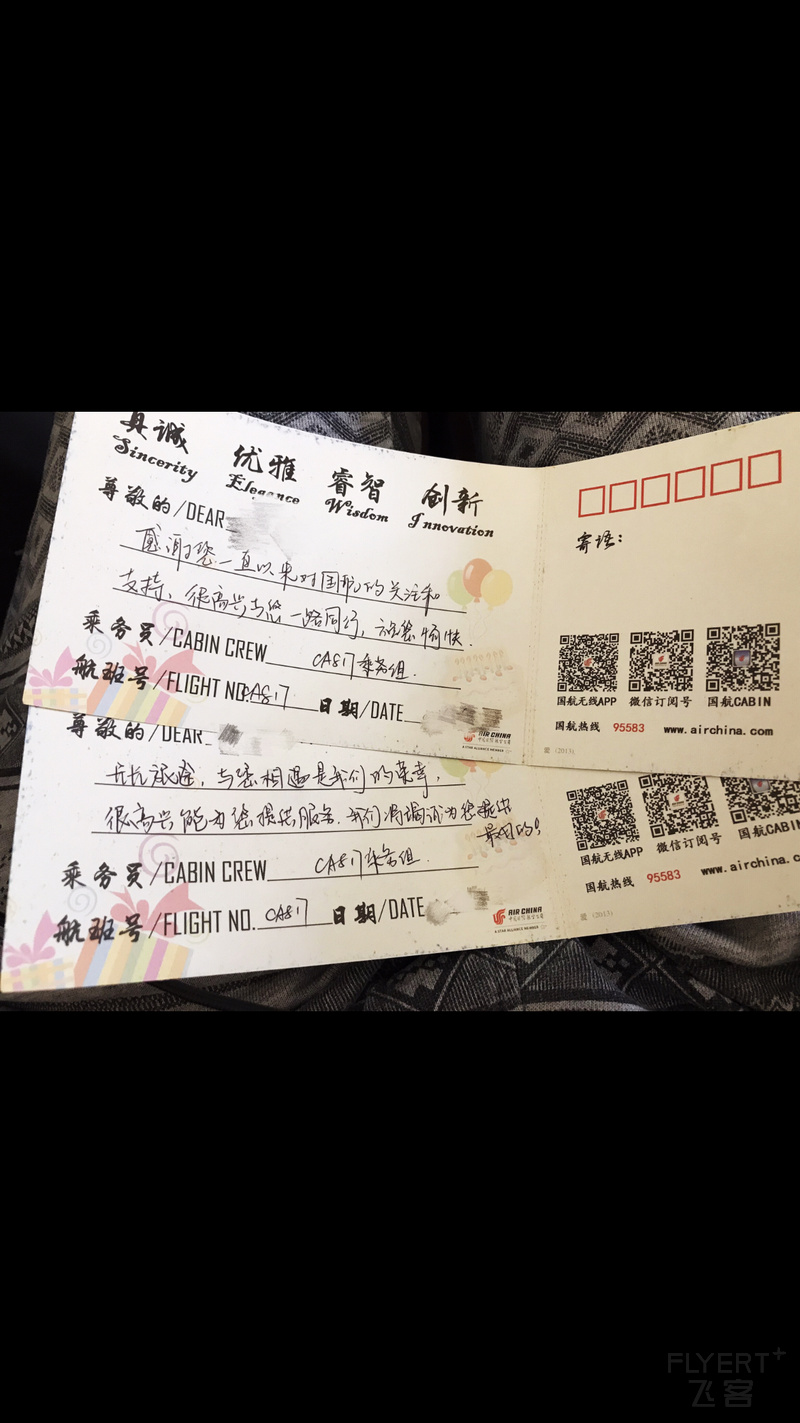 真诚 优雅 睿智 创新
Sincerity Elegance Wisdom Innovation
尊敬的/DEAR
感谢您一直以来对国航的关注和
支持、很高兴与您一路同行，祝您愉快.
乘务员/CABIN CREW CA817乘务组.
航班号/FLIGHT NO. CA817 日期/DATE
AIR CHINA
中国国际航空公司
A STAR ALLIANCE MEMBER
寄语：
国航无线APP 微信订阅号 国航CABIN
国航热线 95583 www.airchina.com
(2013)
尊敬的/DEAR
旅途，与您相遇是我们的荣幸，
很高兴能为您提供服务.我们将竭诚为您提供
最
乘务员/CABIN CREW CA817乘务组.
航班号/FLIGHT NO. CA817 日期/DATE
AIR CHINA
中国国际航空公司
A STAR ALLIANCE MEMBER
国航无线APP 微信订阅号 国航CABIN
国航热线 95583 www.airchina.c
(2013)
FLYERT+
飞客